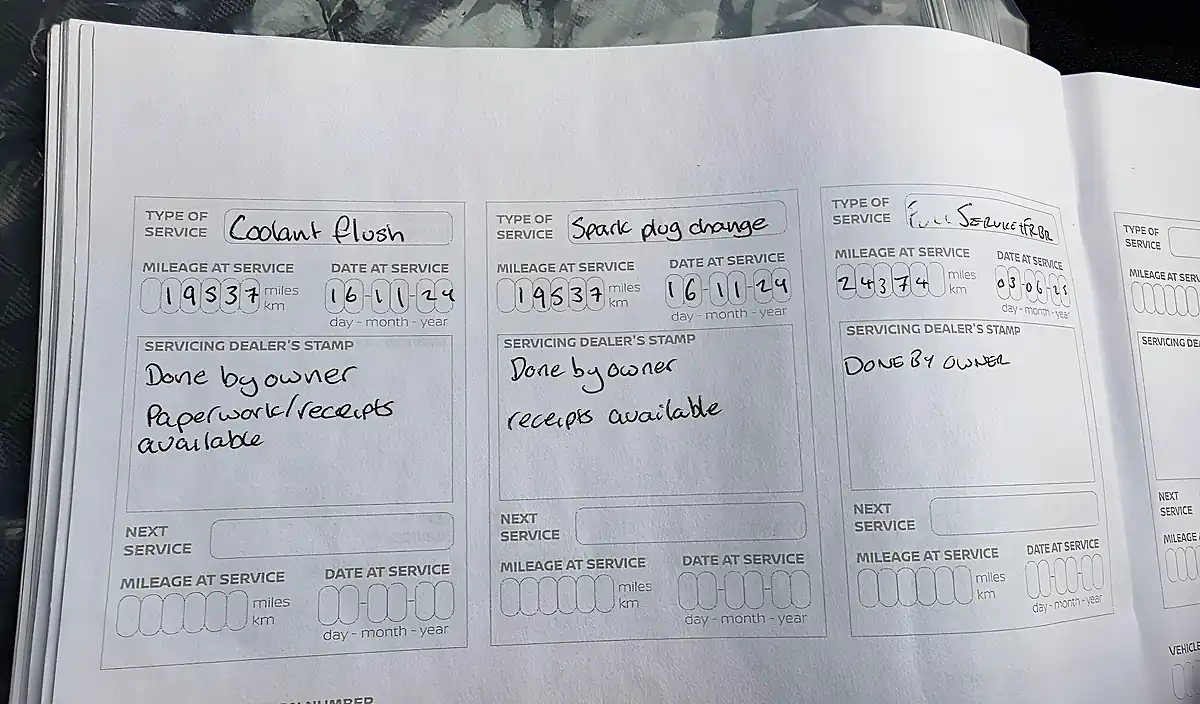 TYPE OF SERVICE Coolant flush
MILEAGE AT SERVICE DATE AT SERVICE
19537 miles km 16-11-24
day - month - year
SERVICING DEALER'S STAMP
Done by owner
Paperwork/receipts
available
NEXT SERVICE
MILEAGE AT SERVICE DATE AT SERVICE
miles km
day - month - year
TYPE OF SERVICE Spark plug change
MILEAGE AT SERVICE DATE AT SERVICE
19537 miles km 16-11-24
day - month - year
SERVICING DEALER'S STAMP
Done by owner
receipts available
NEXT SERVICE
MILEAGE AT SERVICE DATE AT SERVICE
miles km
day - month - year
TYPE OF SERVICE FULL SERVICE
MILEAGE AT SERVICE DATE AT SERVICE
24374 miles km 03-06-25
day - month - year
SERVICING DEALER'S STAMP
DONE BY OWNER
NEXT SERVICE
MILEAGE AT SERVICE DATE AT SERVICE
miles km
day - month - year
TYPE OF SERVICE
MILEAGE AT SERV
SERVICING DE
NEXT SERVICE
MILEAGE
VEHICLE
NUMBER